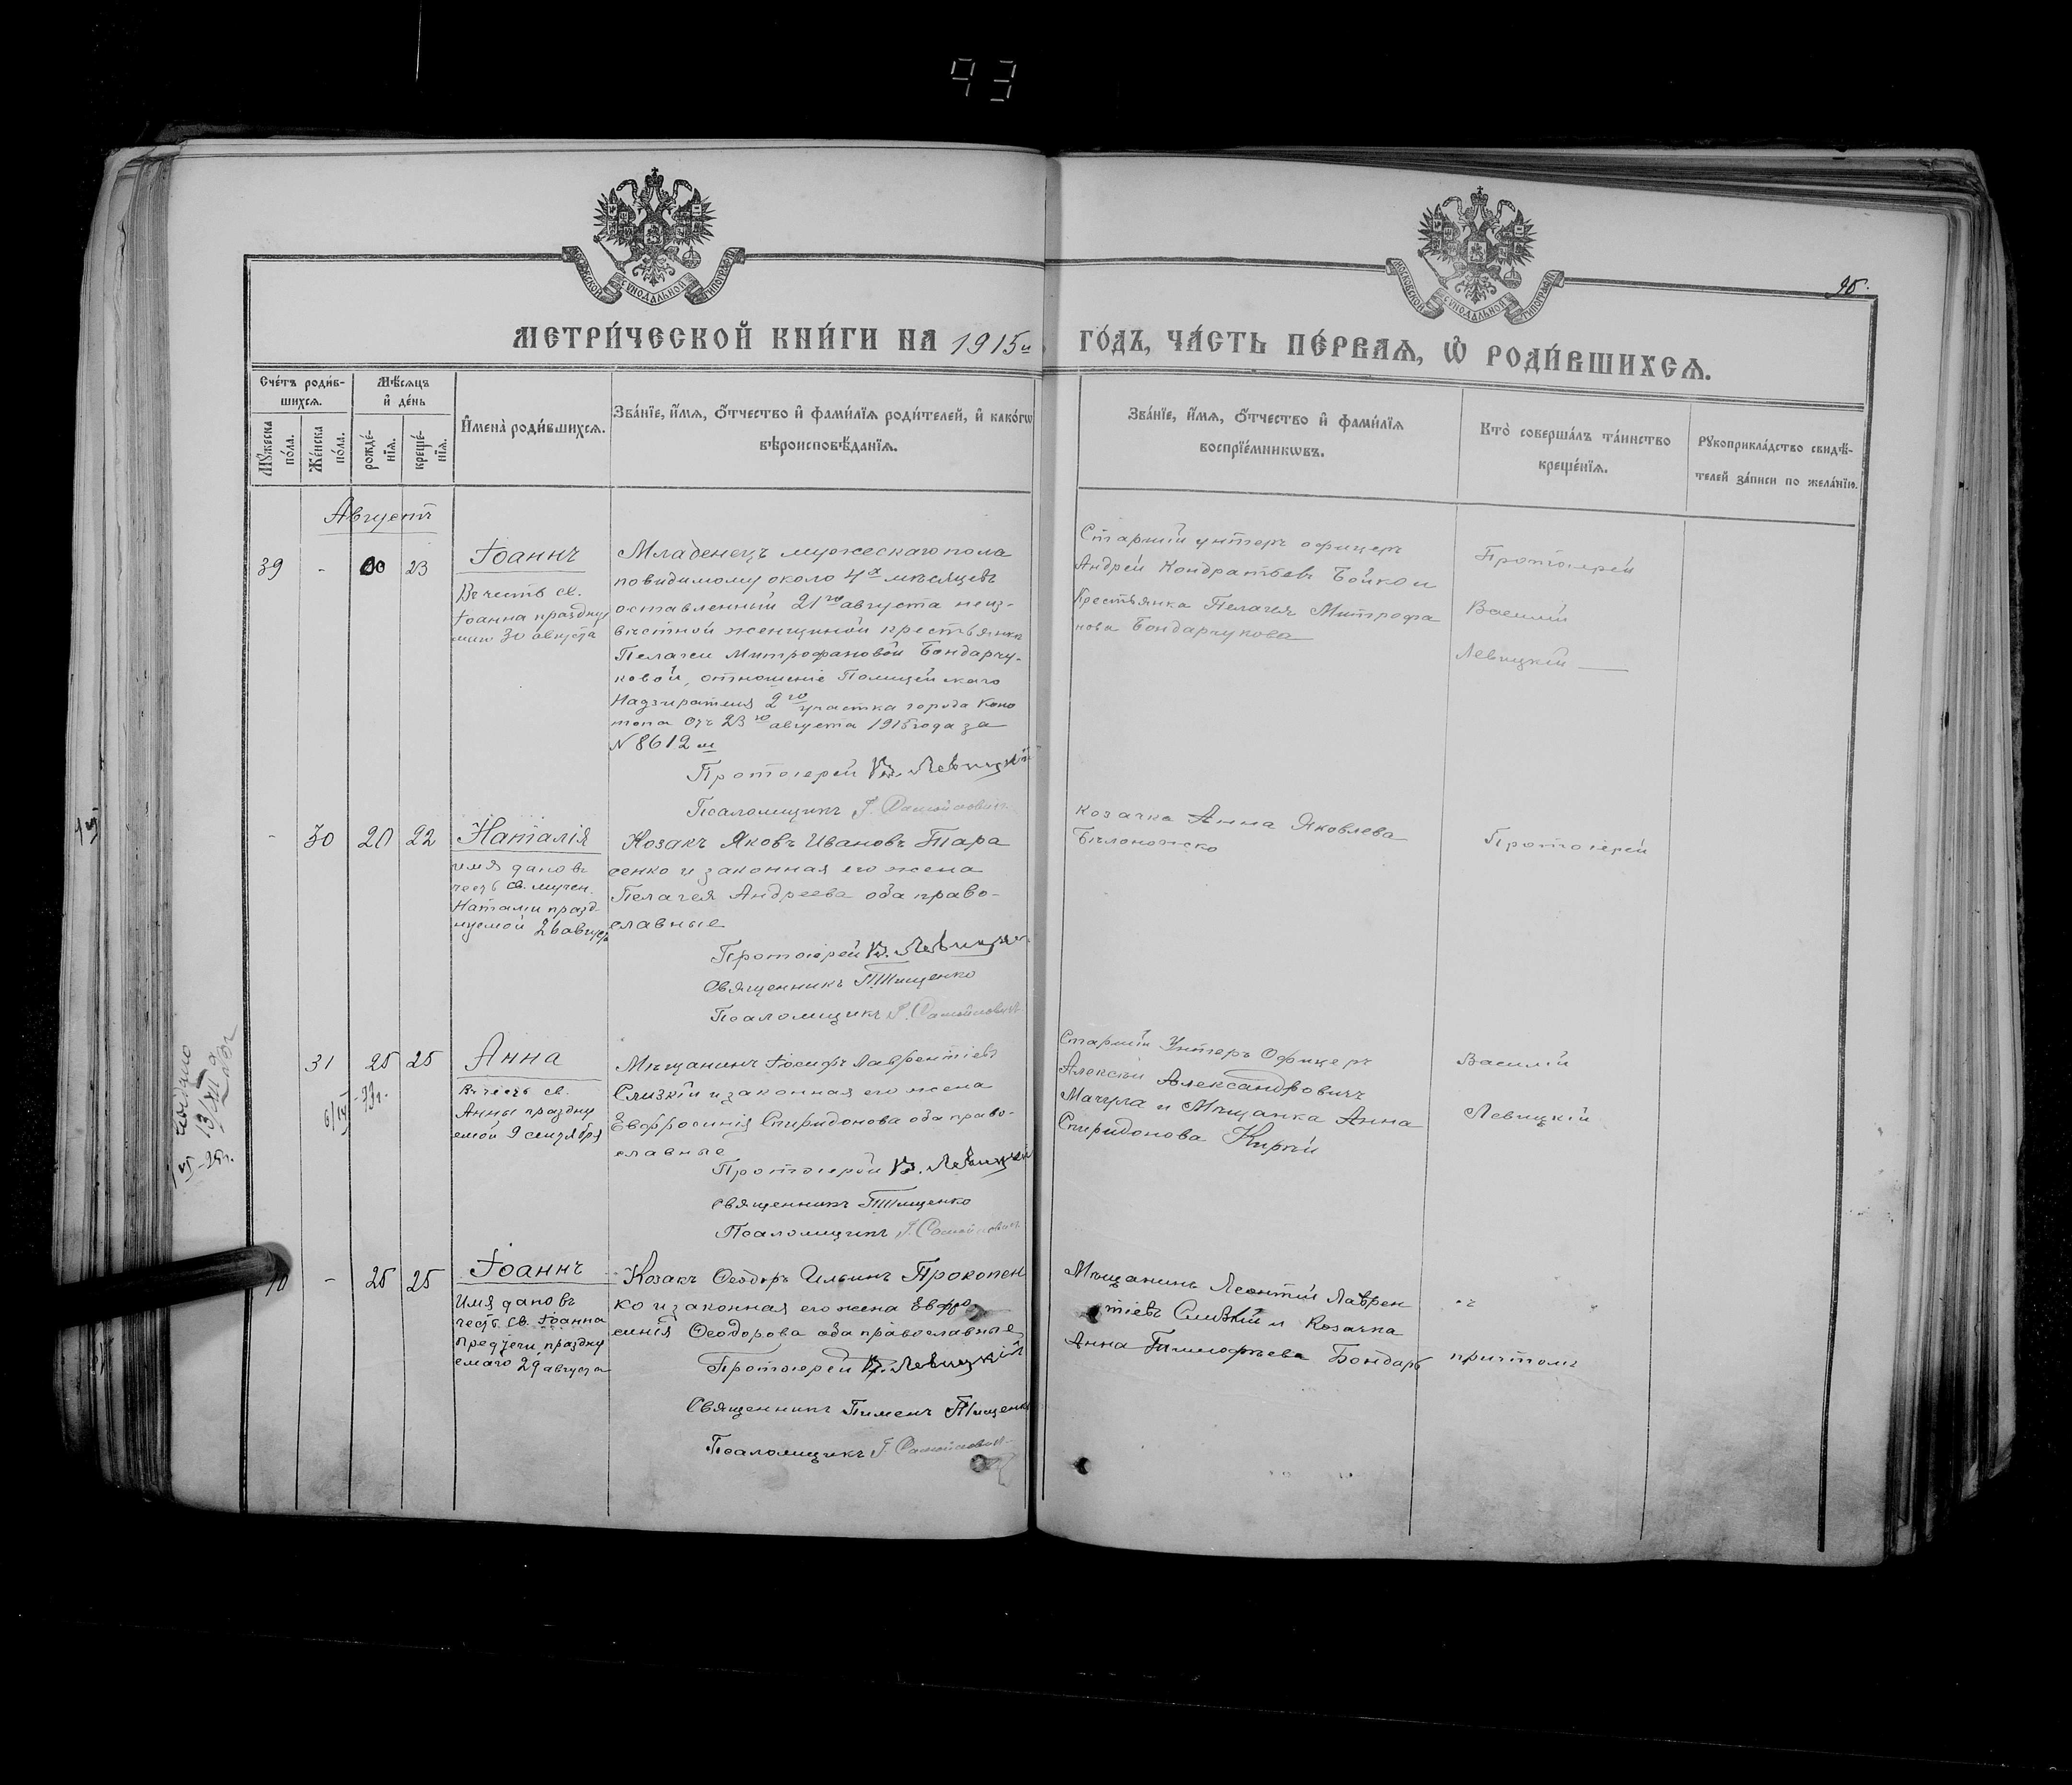 93
МОСКОВСКОЙ СѴНОДАЛЬНОЙ ТИПОГРАФІИ
МОСКОВСКОЙ СѴНОДАЛЬНОЙ ТИПОГРАФІИ
95.
МЕТРИ́ЧЕСКОЙ КНИ́ГИ НА 1915й
ГО́ДЪ, ЧА́СТЬ ПЕ́РВАѦ, Ѡ҆ РОДИ́ВШИХСѦ.
Сче́тъ роди́в-
шихсѧ.
Мѣ́сѧцъ
и҆ де́нь
Мꙋ́жеска
по́ла.
Же́нска
по́ла.
рожде́-
нїѧ.
креще́-
нїѧ.
И҆мена̀ роди́вшихсѧ.
Зва́нїе, и҆́мѧ, ѻ҆́тчество и҆ фами́лїѧ роди́телей, и҆ како́гѡ
вѣроисповѣ́данїѧ.
Зва́нїе, и҆́мѧ, ѻ҆́тчество и҆ фами́лїѧ
воспрїе́мникѡвъ.
Кто̀ соверша́лъ та́инство
креще́нїѧ.
Рꙋкоприкла́дство свидѣ́-
телей за́писи по жела́нїю.
Августъ
39 - 23
Іоаннъ
Въ честь св.
Іоанна праздну
30 августа
Младенецъ мужескаго пола
повидимому около 4х мѣсяцевъ
оставленный 21го августа неиз-
вѣстной женщиной крестьянкѣ
Пелагеи Митрофановой Бондарчу-
ковой, отношеніе Полицейскаго
Надзирателя 2го участка города Коно
топа отъ 23го августа 1915 года за
N 8612м
Протоіерей В. Левицкій
Псаломщикъ Самойловичъ
Старшій унтеръ офицеръ
Андрей Кондратьевъ Бойко и
Крестьянка Пелагея Митрофа
нова Бондарчукова
Протоіерей
Василій
Левицкій
- 30 20 22
Наталія
имя дано въ
честь св. мучен.
Наталіи празд-
нуемой 26 августа
Козакъ Яковъ Ивановъ Тара
сенко и законная его жена
Пелагея Андреева оба право-
славные
Протоіерей В. Левицкій
Священникъ Тищенко
Псаломщикъ Самойловичъ
Козачка Анна Яковлева
Бѣлоножко
Протоіерей
31 25 25
Анна
Въ честь св.
Анны праздну
емой 9 сентября
Мѣщанинъ Іосифъ Лаврентіевъ
Слизкій и законная его жена
Евфросинія Спиридонова оба право-
славные
Протоіерей В. Левицкій
Священникъ Тищенко
Псаломщикъ Самойловичъ
Старшій Унтеръ Офицеръ
Алексѣй Александровичъ
Мачула и Мѣщанка Анна
Спиридонова Кирпи
Василій
Левицкій
- 25 25
Іоаннъ
Имя дано въ
честь св. Іоанна
Предтечи, праздну
емаго 29 августа
Козакъ Ѳеодоръ Ильинъ Прокопен
ко и законная его жена Евфро
синія Ѳеодорова оба православные
Протоіерей В. Левицкій
Священникъ Пименъ Тищенко
Псаломщикъ Самойловичъ
Мѣщанинъ Леонтій Лаврен
тіевъ Слизкій и Козачка
Анна Тимофѣева Бондарь
съ
причтомъ